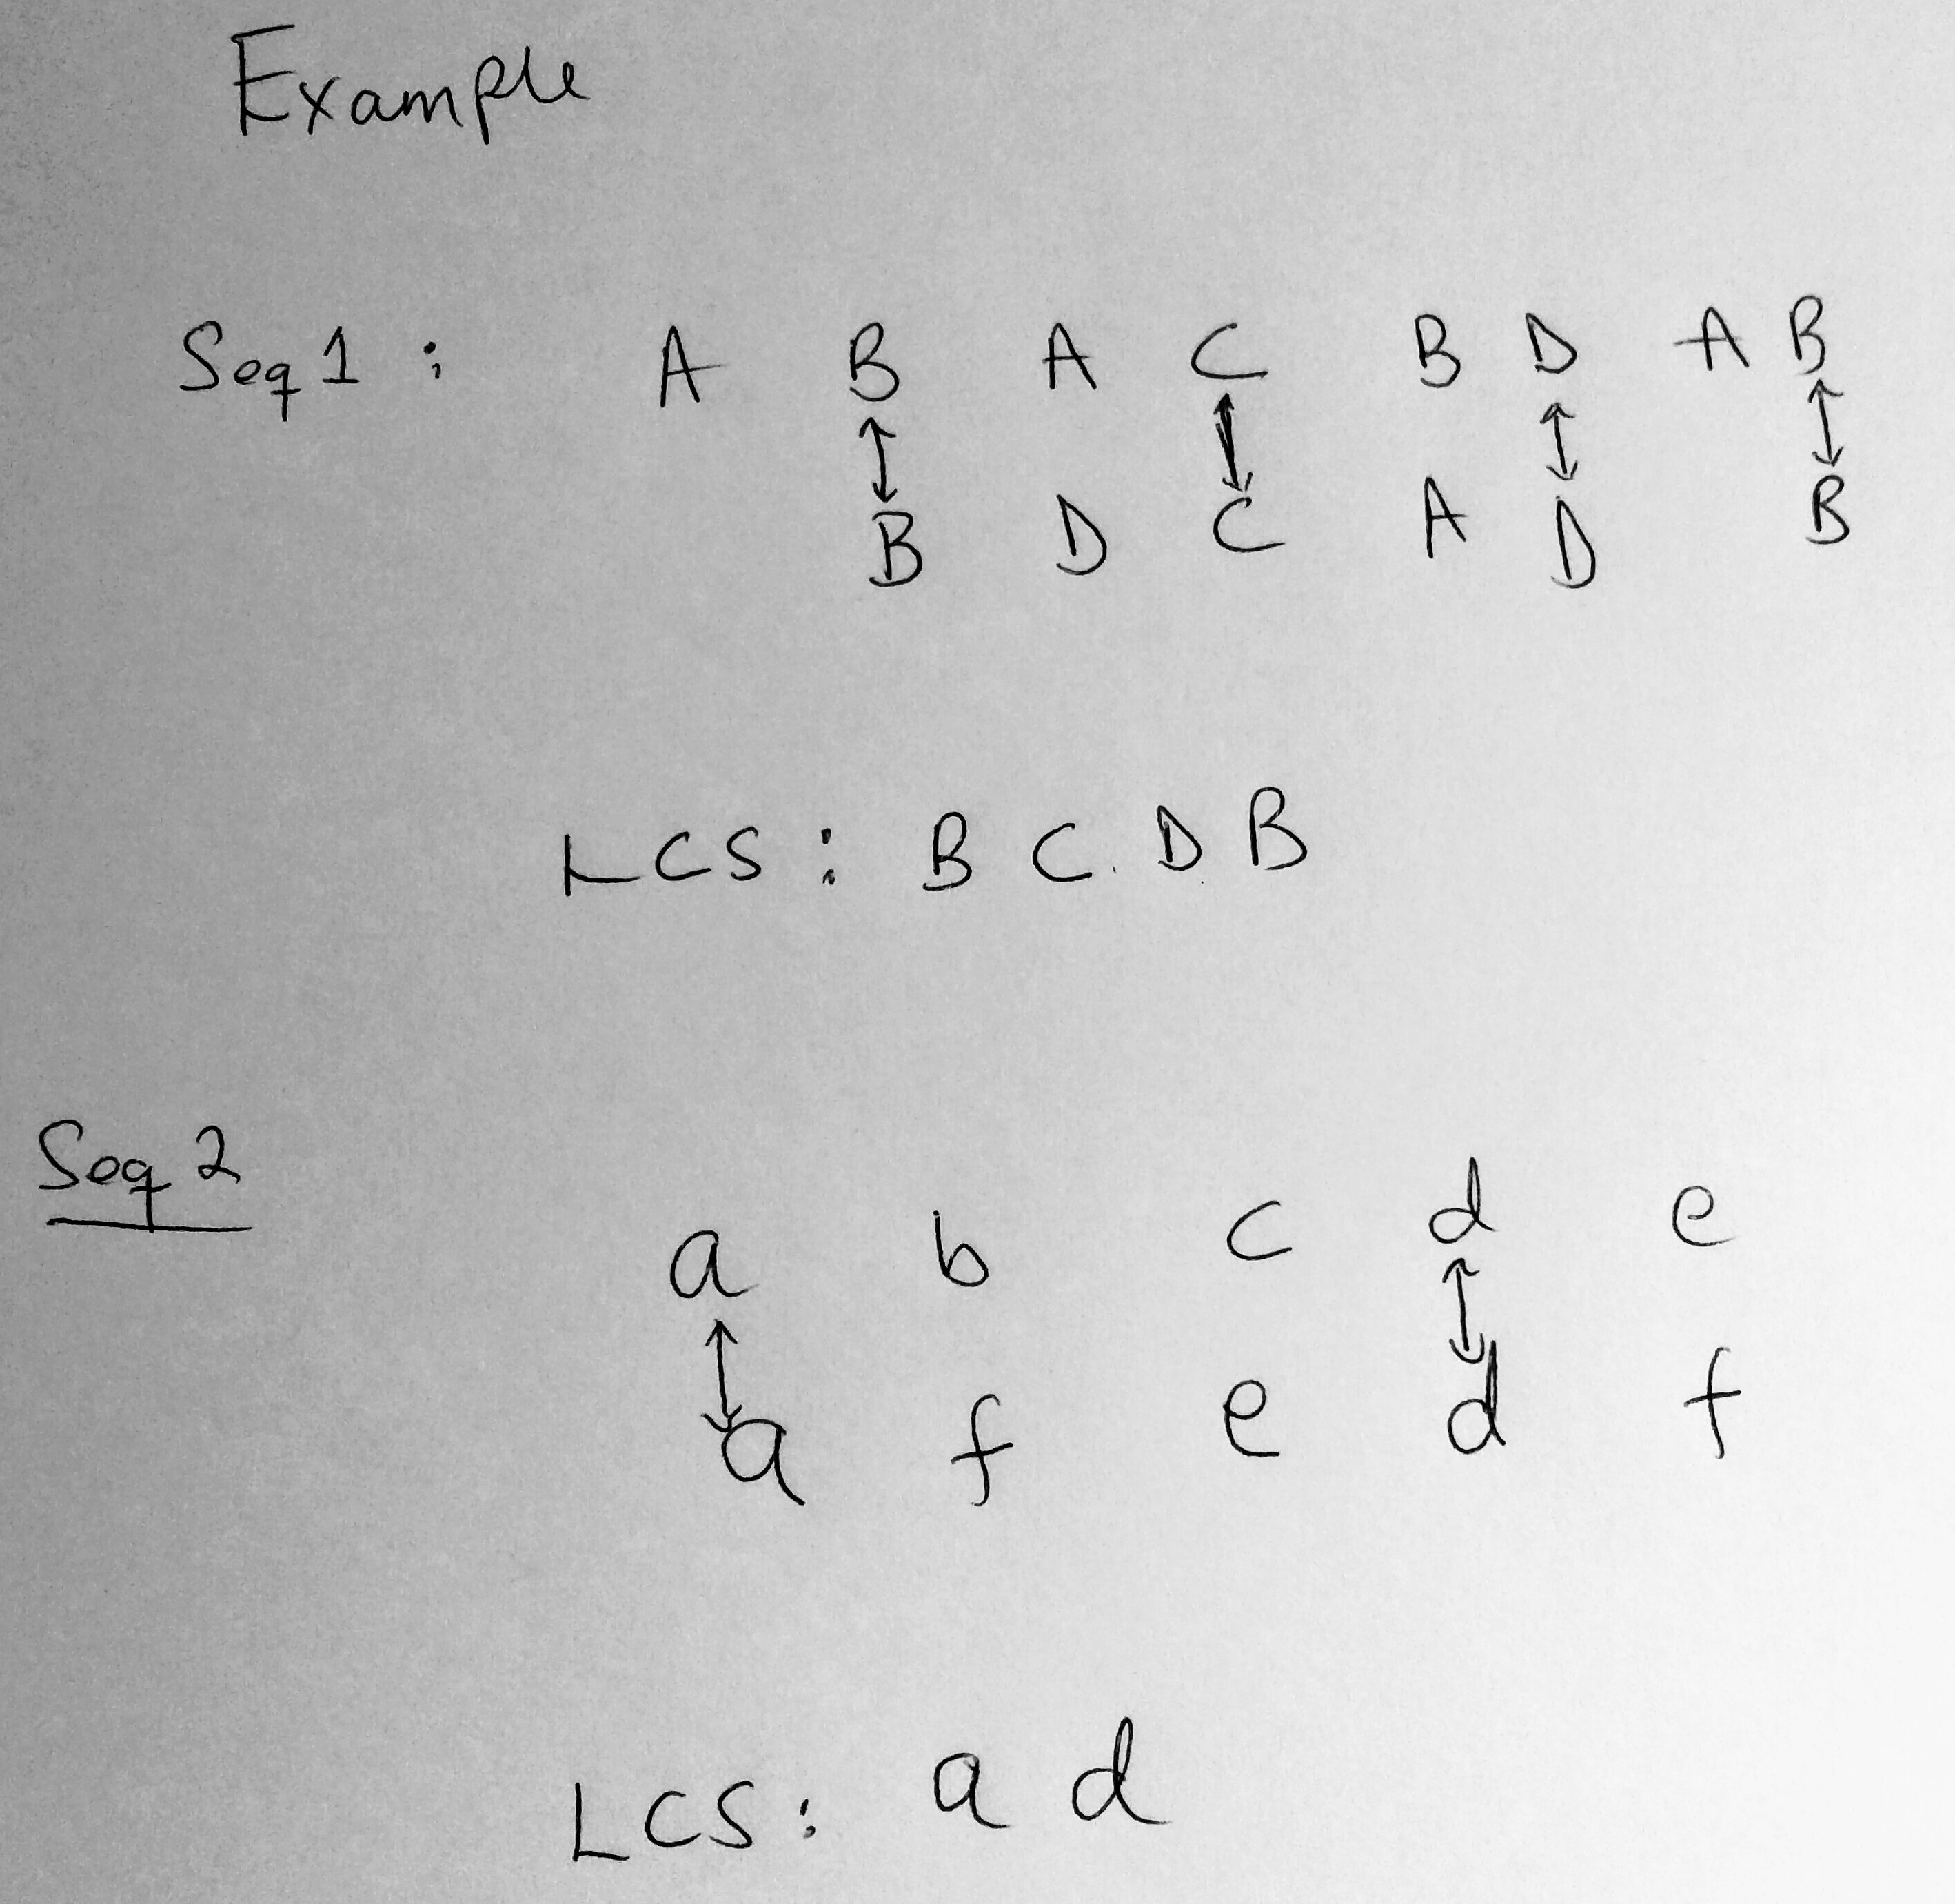 Example
Seq 1 : A B A C B D A B
B D C A D B
LCS : B C. D. B
Seq 2
a b c d e
a f e d f
LCS : a d